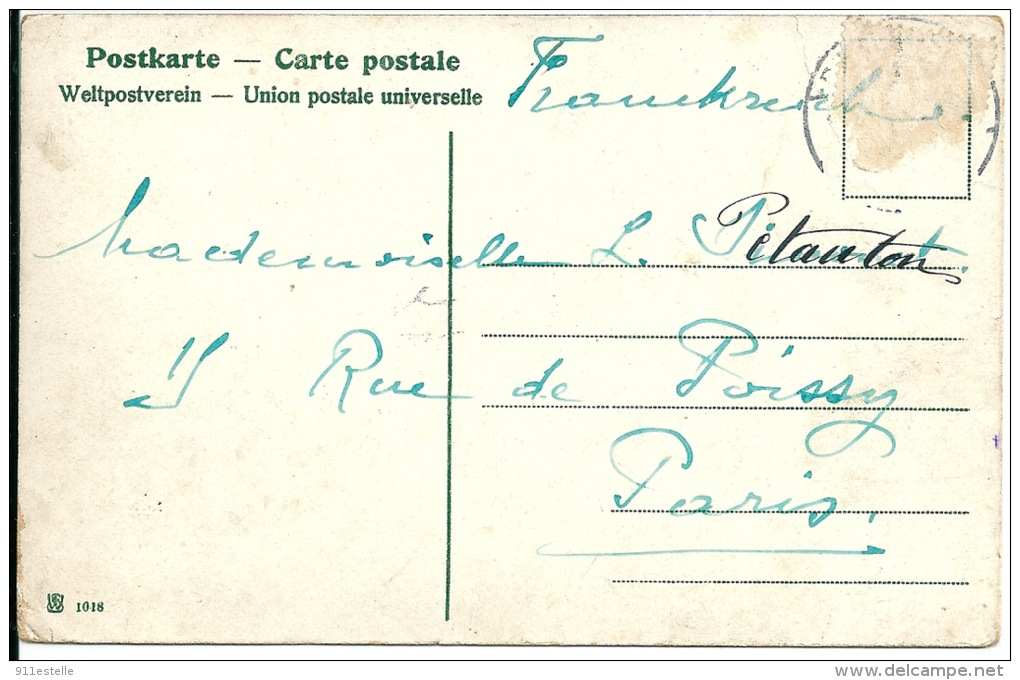 Postkarte — Carte postale
Weltpostverein — Union postale universelle
Frankreich.
Mademoiselle L. Petauton
15 Rue de Poissy
Paris.
1018
911estelle
http://www.delcampe.net